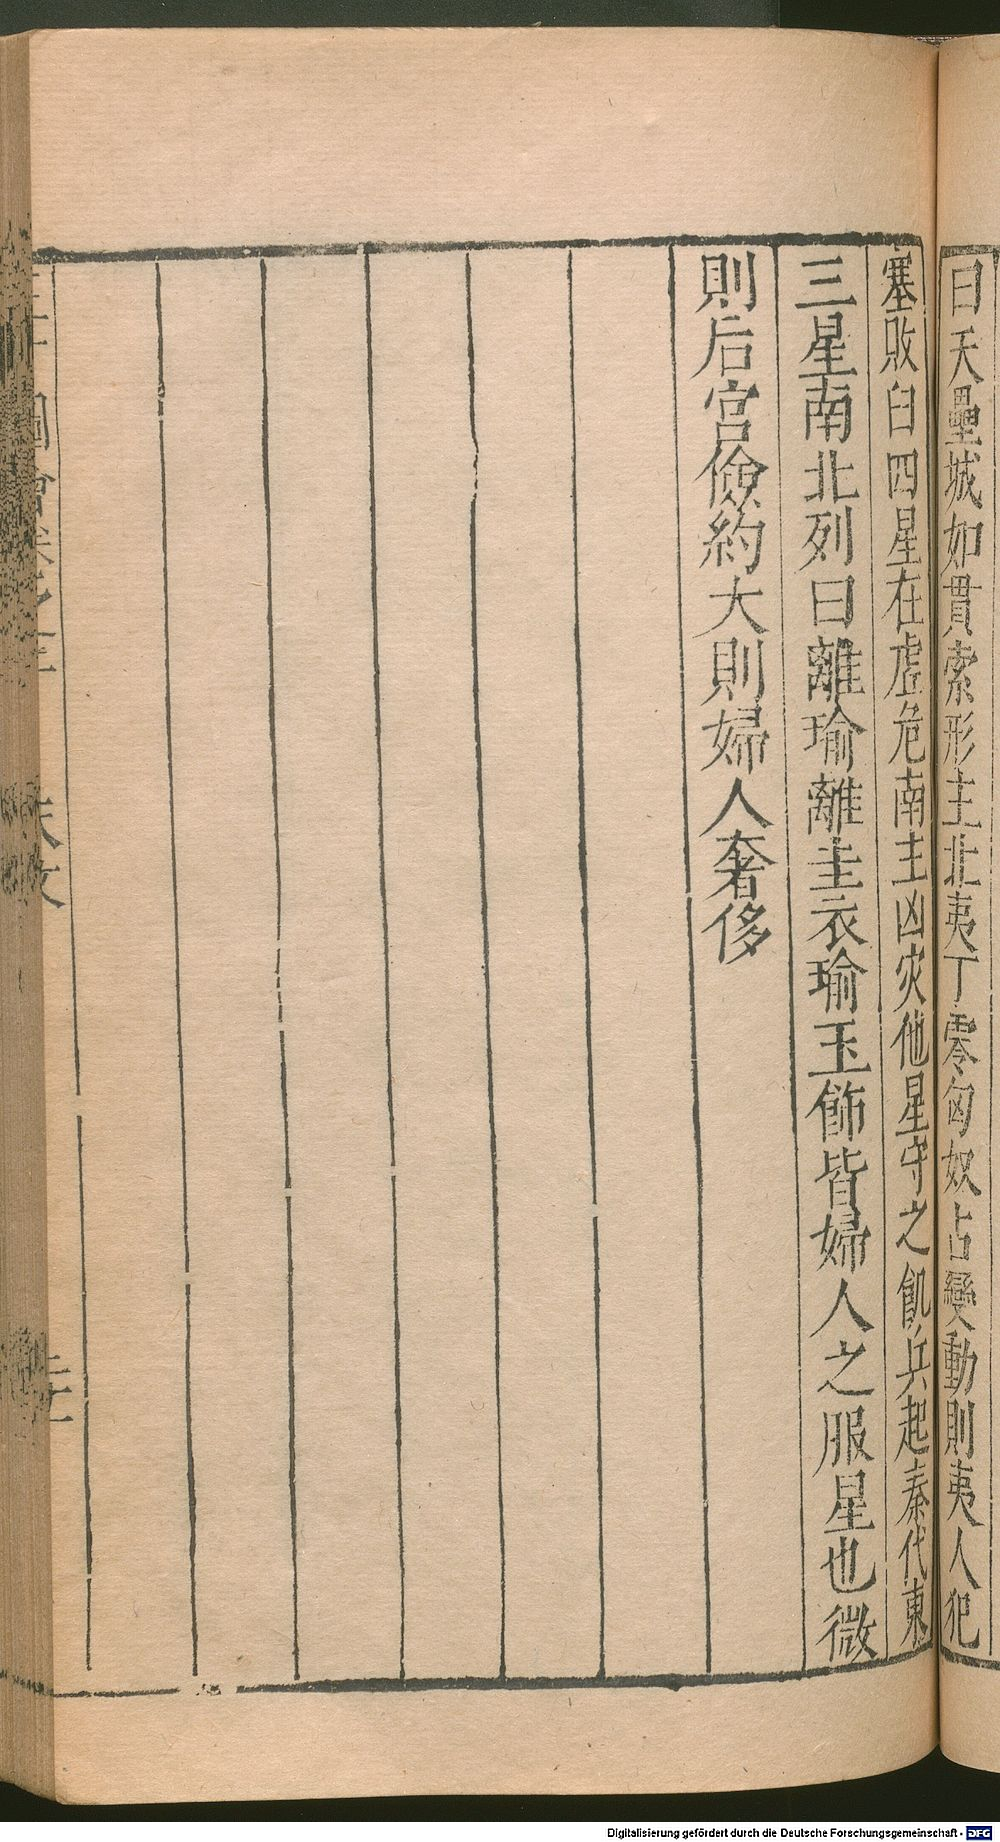 曰天壘城如貫索形主北夷丁零匈奴占變動則夷人犯
塞敗臼四星在虛危南主凶災他星守之飢兵起秦代東
三星南北列曰離瑜離圭衣瑜玉飾皆婦人之服星也微
則后宮儉約大則婦人奢侈
Digitalisierung gefördert durch die Deutsche Forschungsgemeinschaft - DFG